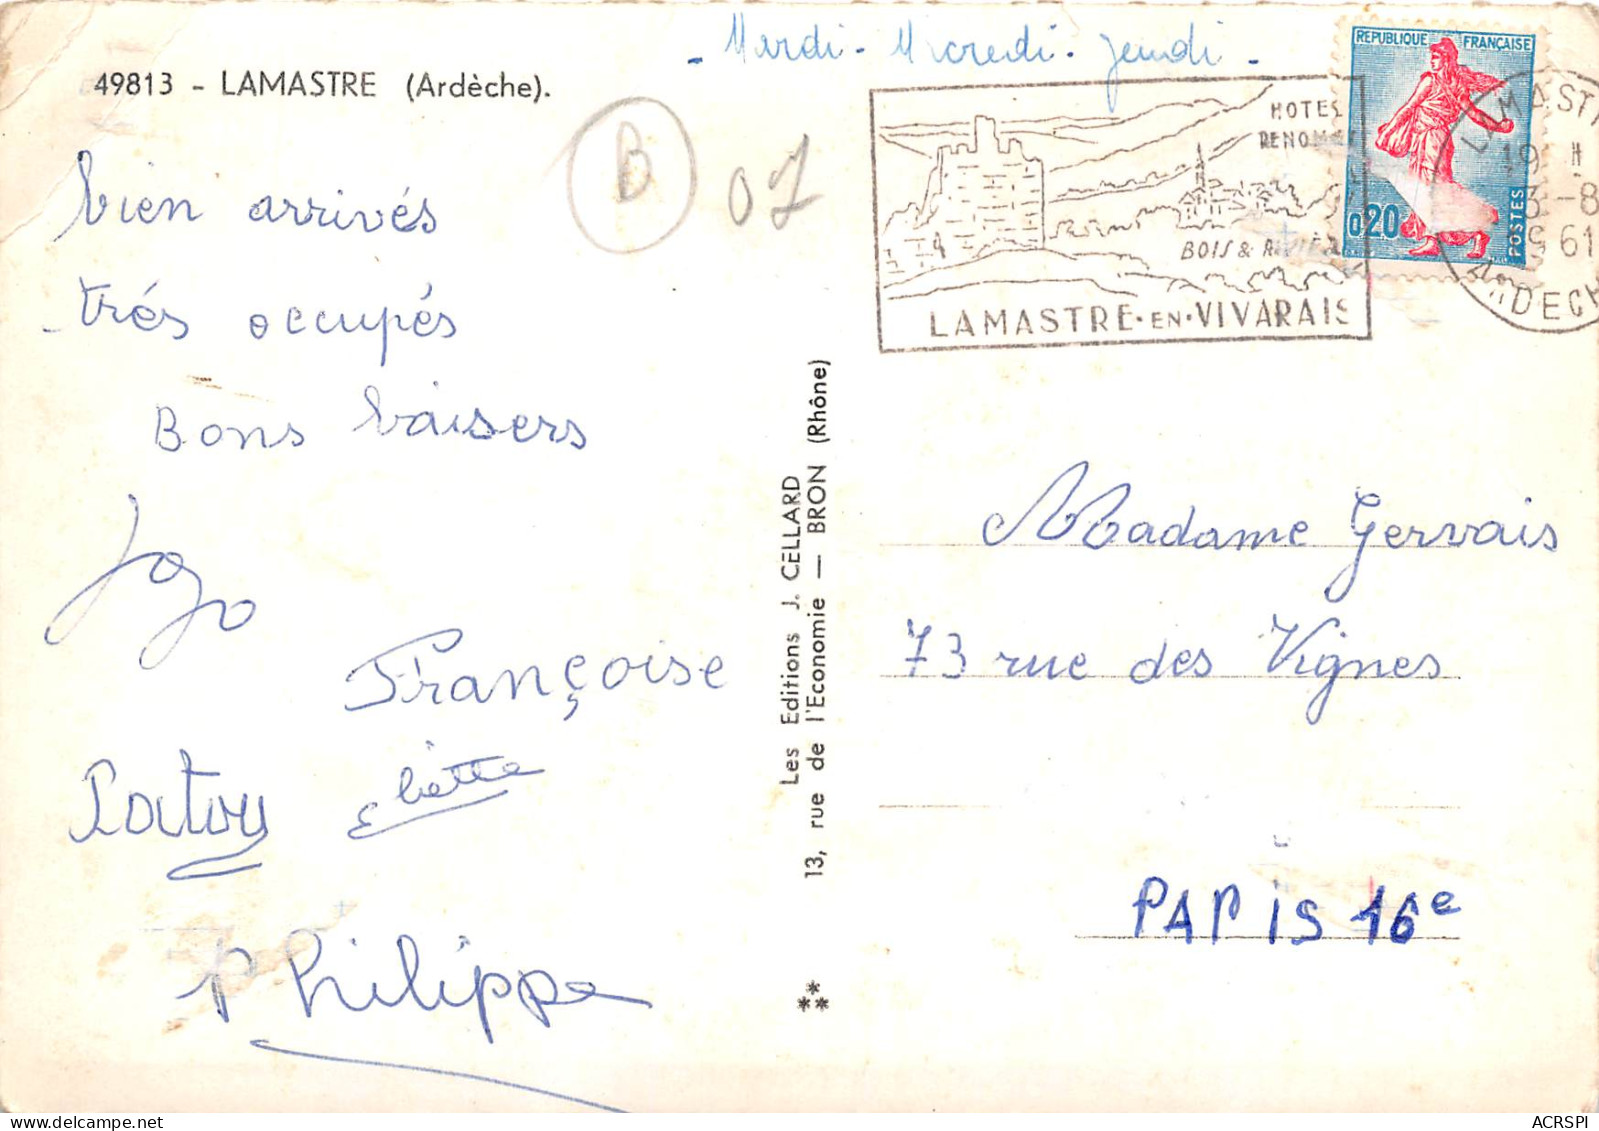 - Mardi - Mercredi - Jeudi -
49813 - LAMASTRE (Ardèche).
B
07
bien arrivés
- très occupés
Bons baisers
Jojo
Françoise
Patou
Philippe
Les Editions J. CELLARD
13, rue de l'Economie — BRON (Rhône)
HOTELS
RENOM
BOIS & RIVIÈR
LAMASTRE·EN·VIVARAIS
REPUBLIQUE FRANÇAISE
0,20
POSTES
LAMAST
19 H
3-8
1961
ARDECH
Madame Gervais
73 rue des Vignes
PARIS 16e
ACRSPI